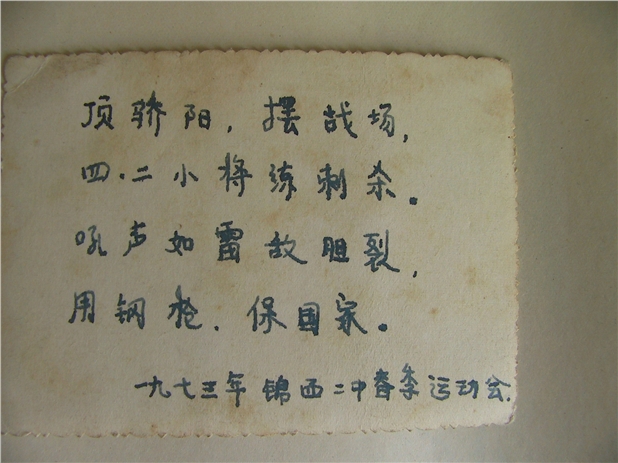 顶骄阳，摆战场，
四·二小将练刺杀。
吼声如雷敌胆裂，
用钢枪．保国家。
一九七三年锦西二中春季运动会.